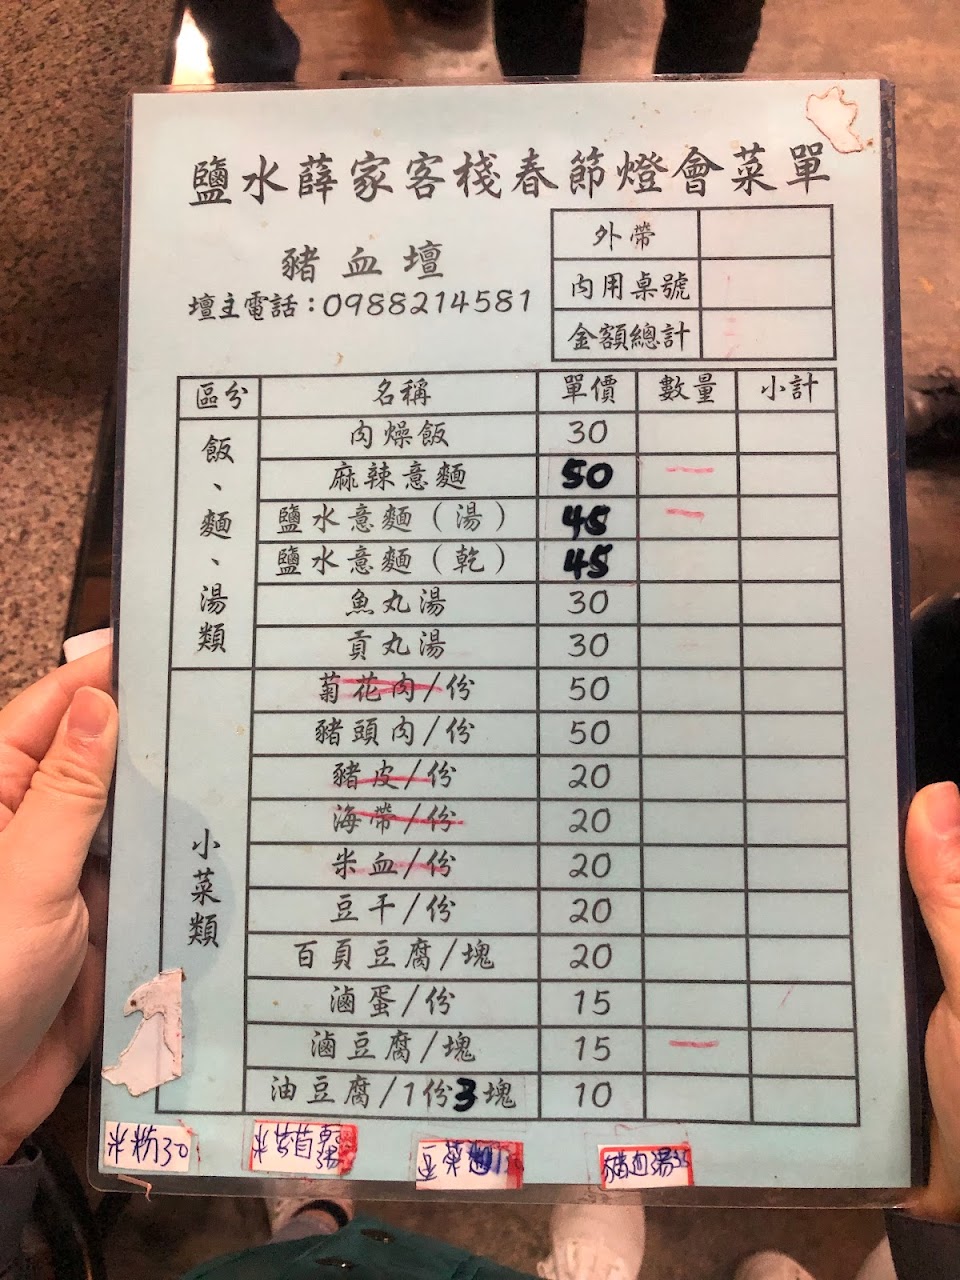 鹽水薛家客棧春節燈會菜單
豬血壇
壇主電話：0988214581
外帶
內用桌號
金額總計
區分 名稱 單價 數量 小計
飯、麵、湯類
肉燥飯 30
麻辣意麵 50 一
鹽水意麵（湯） 45 一
鹽水意麵（乾） 45
魚丸湯 30
貢丸湯 30
小菜類
菊花肉/份 50
豬頭肉/份 50
豬皮/份 20
海帶/份 20
米血/份 20
豆干/份 20
百頁豆腐/塊 20
滷蛋/份 15
滷豆腐/塊 15 一
油豆腐/1份3塊 10
米粉30
米苔目
豆菜
豬血湯35